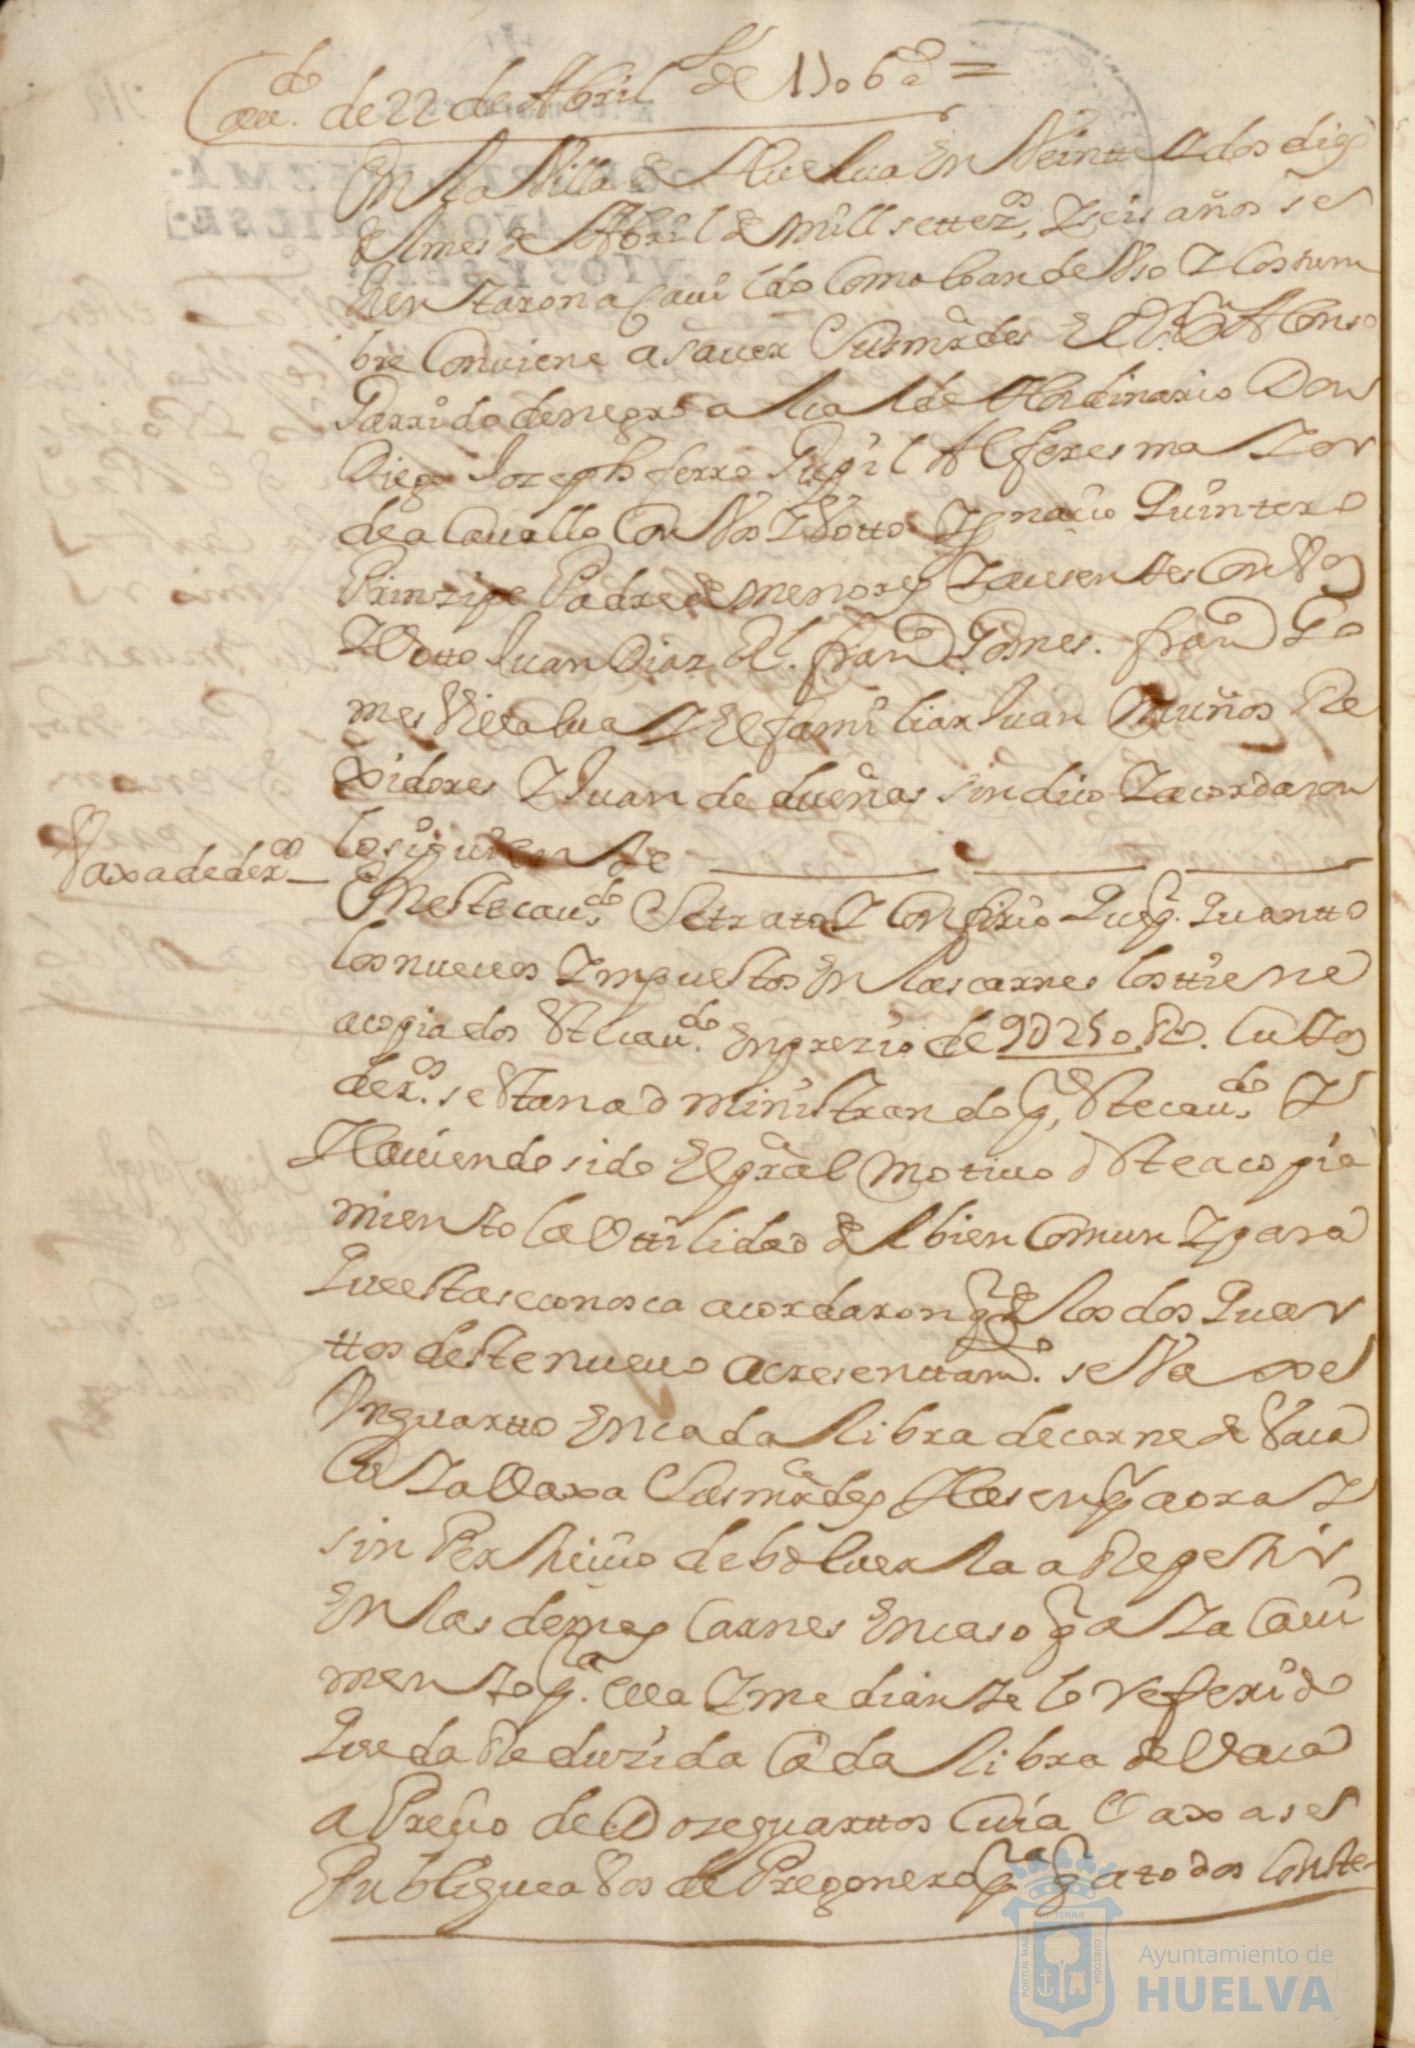 Cavdo. de 22 de Abril de 1706 as =
En la Villa de Huelva En Veintte Y dos dias
del mes de Abril de mill settezos. Y seis años se
Juntaron a Cavildo Como lo an de Vso Y Costum
bre Conviene a saver Sus mrdes El Alonso
Garrido de negro alcalde Hordinario Don
Diego Joseph ferro Alferes maior
de a Cavallo Con Vos Y Votto Ygnacio Quintero
Prinzipe Padre de menores Y Con Vos
Y Votto Juan Diaz franco Gomes. franco Go
mes Villalva Y El familiar Juan Muños Re
xidores Y Juan de dueñas sindico Y acordaron
lo siguiente
Vaxa de deros
En este cavdo. Se trato Y Confirio Que pr. Quantto
los nuevos Ympuestos En las carnes los ttiene
acopiados Este cavdo. En prezio de 9U250 Rs. Cuios
deros. se Estan administrando pr. Este cavdo. Y
Haviendo sido El pral motivo deste acopia
miento la Uttilidad del bien Comun Y para
Que esta se conosca acordaron q de los dos Quar
ttos deste nuevo acresenttamto. se Vaxe
Un quartto En cada libra de carne de Vaca
Cuia Vaxa Sus mrdes Hasen pr aora Y
sin Perjuicio de bolverla a Repetir
En las demas Carnes En caso q aia Cavi
mento pa. ella Y mediante lo referido
Queda Reduzida Cada libra de Vaca
a Precio de Doze quarttos Cuia Vaxa se
Publique a Vos de Pregonero pa q a todos Conste
Ayuntamiento de
HUELVA
PORTUS MARIS ET TERRÆ CUSTODIA